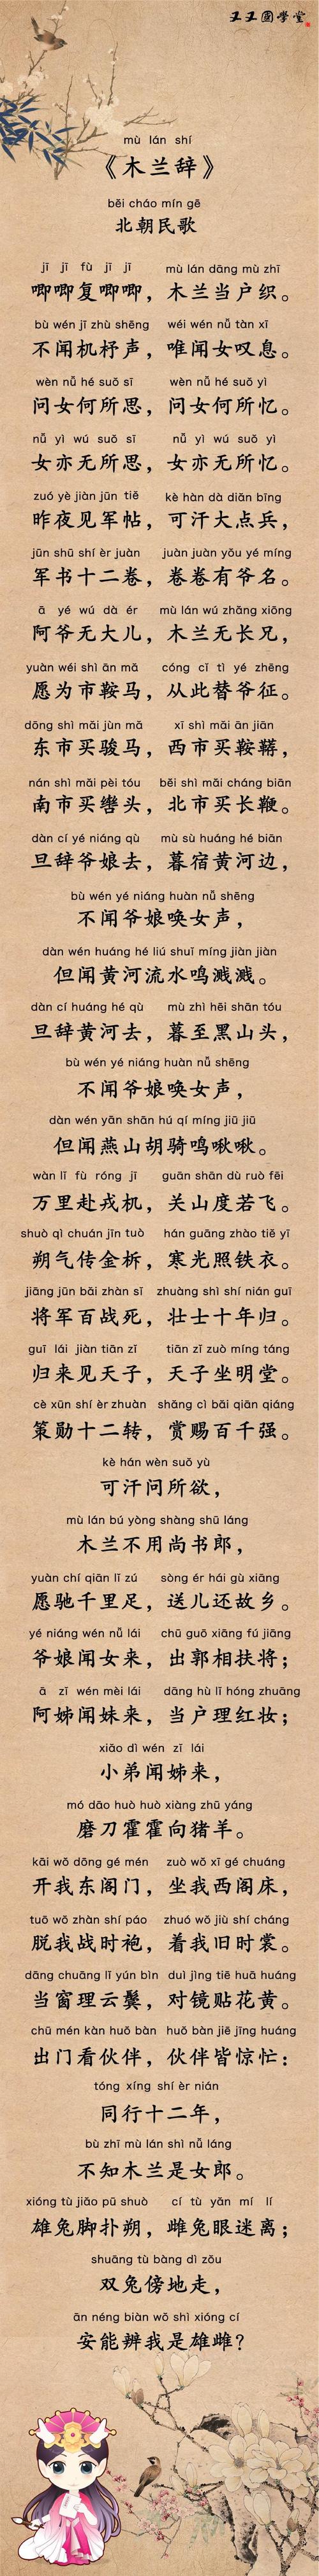 王王國學堂
mù lán shí
《木兰辞》
běi cháo mín gē
北朝民歌
jī jī fù jī jī mù lán dāng mù zhī
唧唧复唧唧，木兰当户织。
bù wén jī zhù shēng wéi wén nǚ tàn xī
不闻机杼声，唯闻女叹息。
wèn nǚ hé suǒ sī wèn nǚ hé suǒ yì
问女何所思，问女何所忆。
nǚ yì wú suǒ sī nǚ yì wú suǒ yì
女亦无所思，女亦无所忆。
zuó yè jiàn jūn tiě kè hàn dà diǎn bīng
昨夜见军帖，可汗大点兵，
jūn shū shí èr juàn juàn juàn yǒu yé míng
军书十二卷，卷卷有爷名。
ā yé wú dà ér mù lán wú zhǎng xiōng
阿爷无大儿，木兰无长兄，
yuàn wéi shì ān mǎ cóng cǐ tì yé zhēng
愿为市鞍马，从此替爷征。
dōng shì mǎi jùn mǎ xī shì mǎi ān jiān
东市买骏马，西市买鞍鞯，
nán shì mǎi pèi tóu běi shì mǎi cháng biān
南市买辔头，北市买长鞭。
dàn cí yé niáng qù mù sù huáng hé biān
旦辞爷娘去，暮宿黄河边，
bù wén yé niáng huàn nǚ shēng
不闻爷娘唤女声，
dàn wén huáng hé liú shuǐ míng jiàn jiàn
但闻黄河流水鸣溅溅。
dàn cí huáng hé qù mù zhì hēi shān tóu
旦辞黄河去，暮至黑山头，
bù wén yé niáng huàn nǚ shēng
不闻爷娘唤女声，
dàn wén yān shān hú qí míng jiū jiū
但闻燕山胡骑鸣啾啾。
wàn lǐ fù róng jī guān shān dù ruò fēi
万里赴戎机，关山度若飞。
shuò qì chuán jīn tuò hán guāng zhào tiě yī
朔气传金柝，寒光照铁衣。
jiāng jūn bǎi zhàn sǐ zhuàng shì shí nián guī
将军百战死，壮士十年归。
guī lái jiàn tiān zǐ tiān zǐ zuò míng táng
归来见天子，天子坐明堂。
cè xūn shí èr zhuàn shǎng cì bǎi qiān qiáng
策勋十二转，赏赐百千强。
kè hán wèn suǒ yù
可汗问所欲，
mù lán bú yòng shàng shū láng
木兰不用尚书郎，
yuàn chí qiān lǐ zú sòng ér hái gù xiāng
愿驰千里足，送儿还故乡。
yé niáng wén nǚ lái chū guō xiāng fú jiāng
爷娘闻女来，出郭相扶将；
ā zǐ wén mèi lái dāng hù lǐ hóng zhuāng
阿姊闻妹来，当户理红妆；
xiǎo dì wén zǐ lái
小弟闻姊来，
mó dāo huò huò xiàng zhū yáng
磨刀霍霍向猪羊。
kāi wǒ dōng gé mén zuò wǒ xī gé chuáng
开我东阁门，坐我西阁床，
tuō wǒ zhàn shí páo zhuó wǒ jiù shí cháng
脱我战时袍，着我旧时裳。
dāng chuāng lǐ yún bìn duì jìng tiē huā huáng
当窗理云鬓，对镜贴花黄。
chū mén kàn huǒ bàn huǒ bàn jiē jīng huáng
出门看伙伴，伙伴皆惊忙：
tóng xíng shí èr nián
同行十二年，
bù zhī mù lán shì nǚ láng
不知木兰是女郎。
xióng tù jiǎo pū shuò cí tù yǎn mí lí
雄兔脚扑朔，雌兔眼迷离；
shuāng tù bàng dì zǒu
双兔傍地走，
ān néng biàn wǒ shì xióng cí
安能辨我是雄雌？